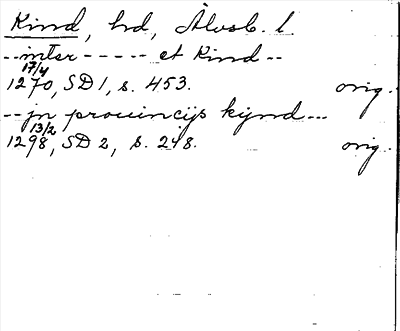 Kind, hd, Älvsb. l.
-- inter ----- et Kind --
17/4
1270, SD 1, s. 453. orig.
-- jn prouincijs kijnd ---
13/2
1298, SD 2, s. 248. orig.